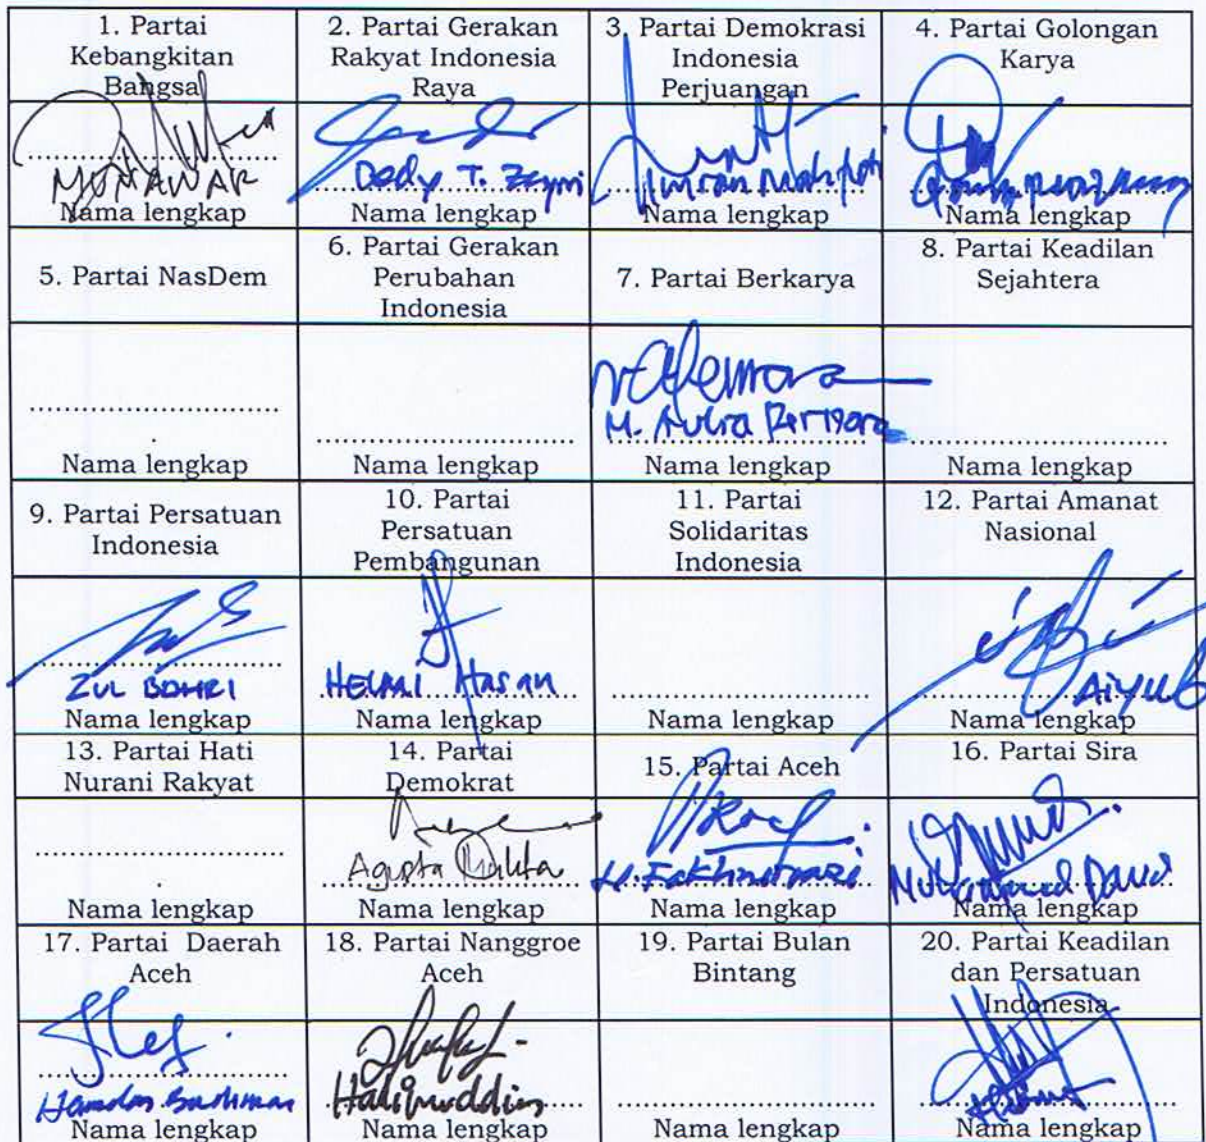 1. Partai
Kebangkitan
Bangsa
2. Partai Gerakan
Rakyat Indonesia
Raya
3. Partai Demokrasi
Indonesia
Perjuangan
4. Partai Golongan
Karya
MUNAWAR
Nama lengkap
Dedy T. Zaymi
Nama lengkap
Imran
Nama lengkap
Nama lengkap
5. Partai NasDem
6. Partai Gerakan
Perubahan
Indonesia
7. Partai Berkarya
8. Partai Keadilan
Sejahtera
Nama lengkap
Nama lengkap
M. Aulia
Nama lengkap
Nama lengkap
9. Partai Persatuan
Indonesia
10. Partai
Persatuan
Pembangunan
11. Partai
Solidaritas
Indonesia
12. Partai Amanat
Nasional
ZUL BAHRI
Nama lengkap
HELMI Hasan
Nama lengkap
Nama lengkap
Aiyub
Nama lengkap
13. Partai Hati
Nurani Rakyat
14. Partai
Demokrat
15. Partai Aceh
16. Partai Sira
Nama lengkap
Agusta
Nama lengkap
H. Fakhrurrazi
Nama lengkap
Muhammad Daud
Nama lengkap
17. Partai Daerah
Aceh
18. Partai Nanggroe
Aceh
19. Partai Bulan
Bintang
20. Partai Keadilan
dan Persatuan
Indonesia
Hamdan
Nama lengkap
Nama lengkap
Nama lengkap
Nama lengkap